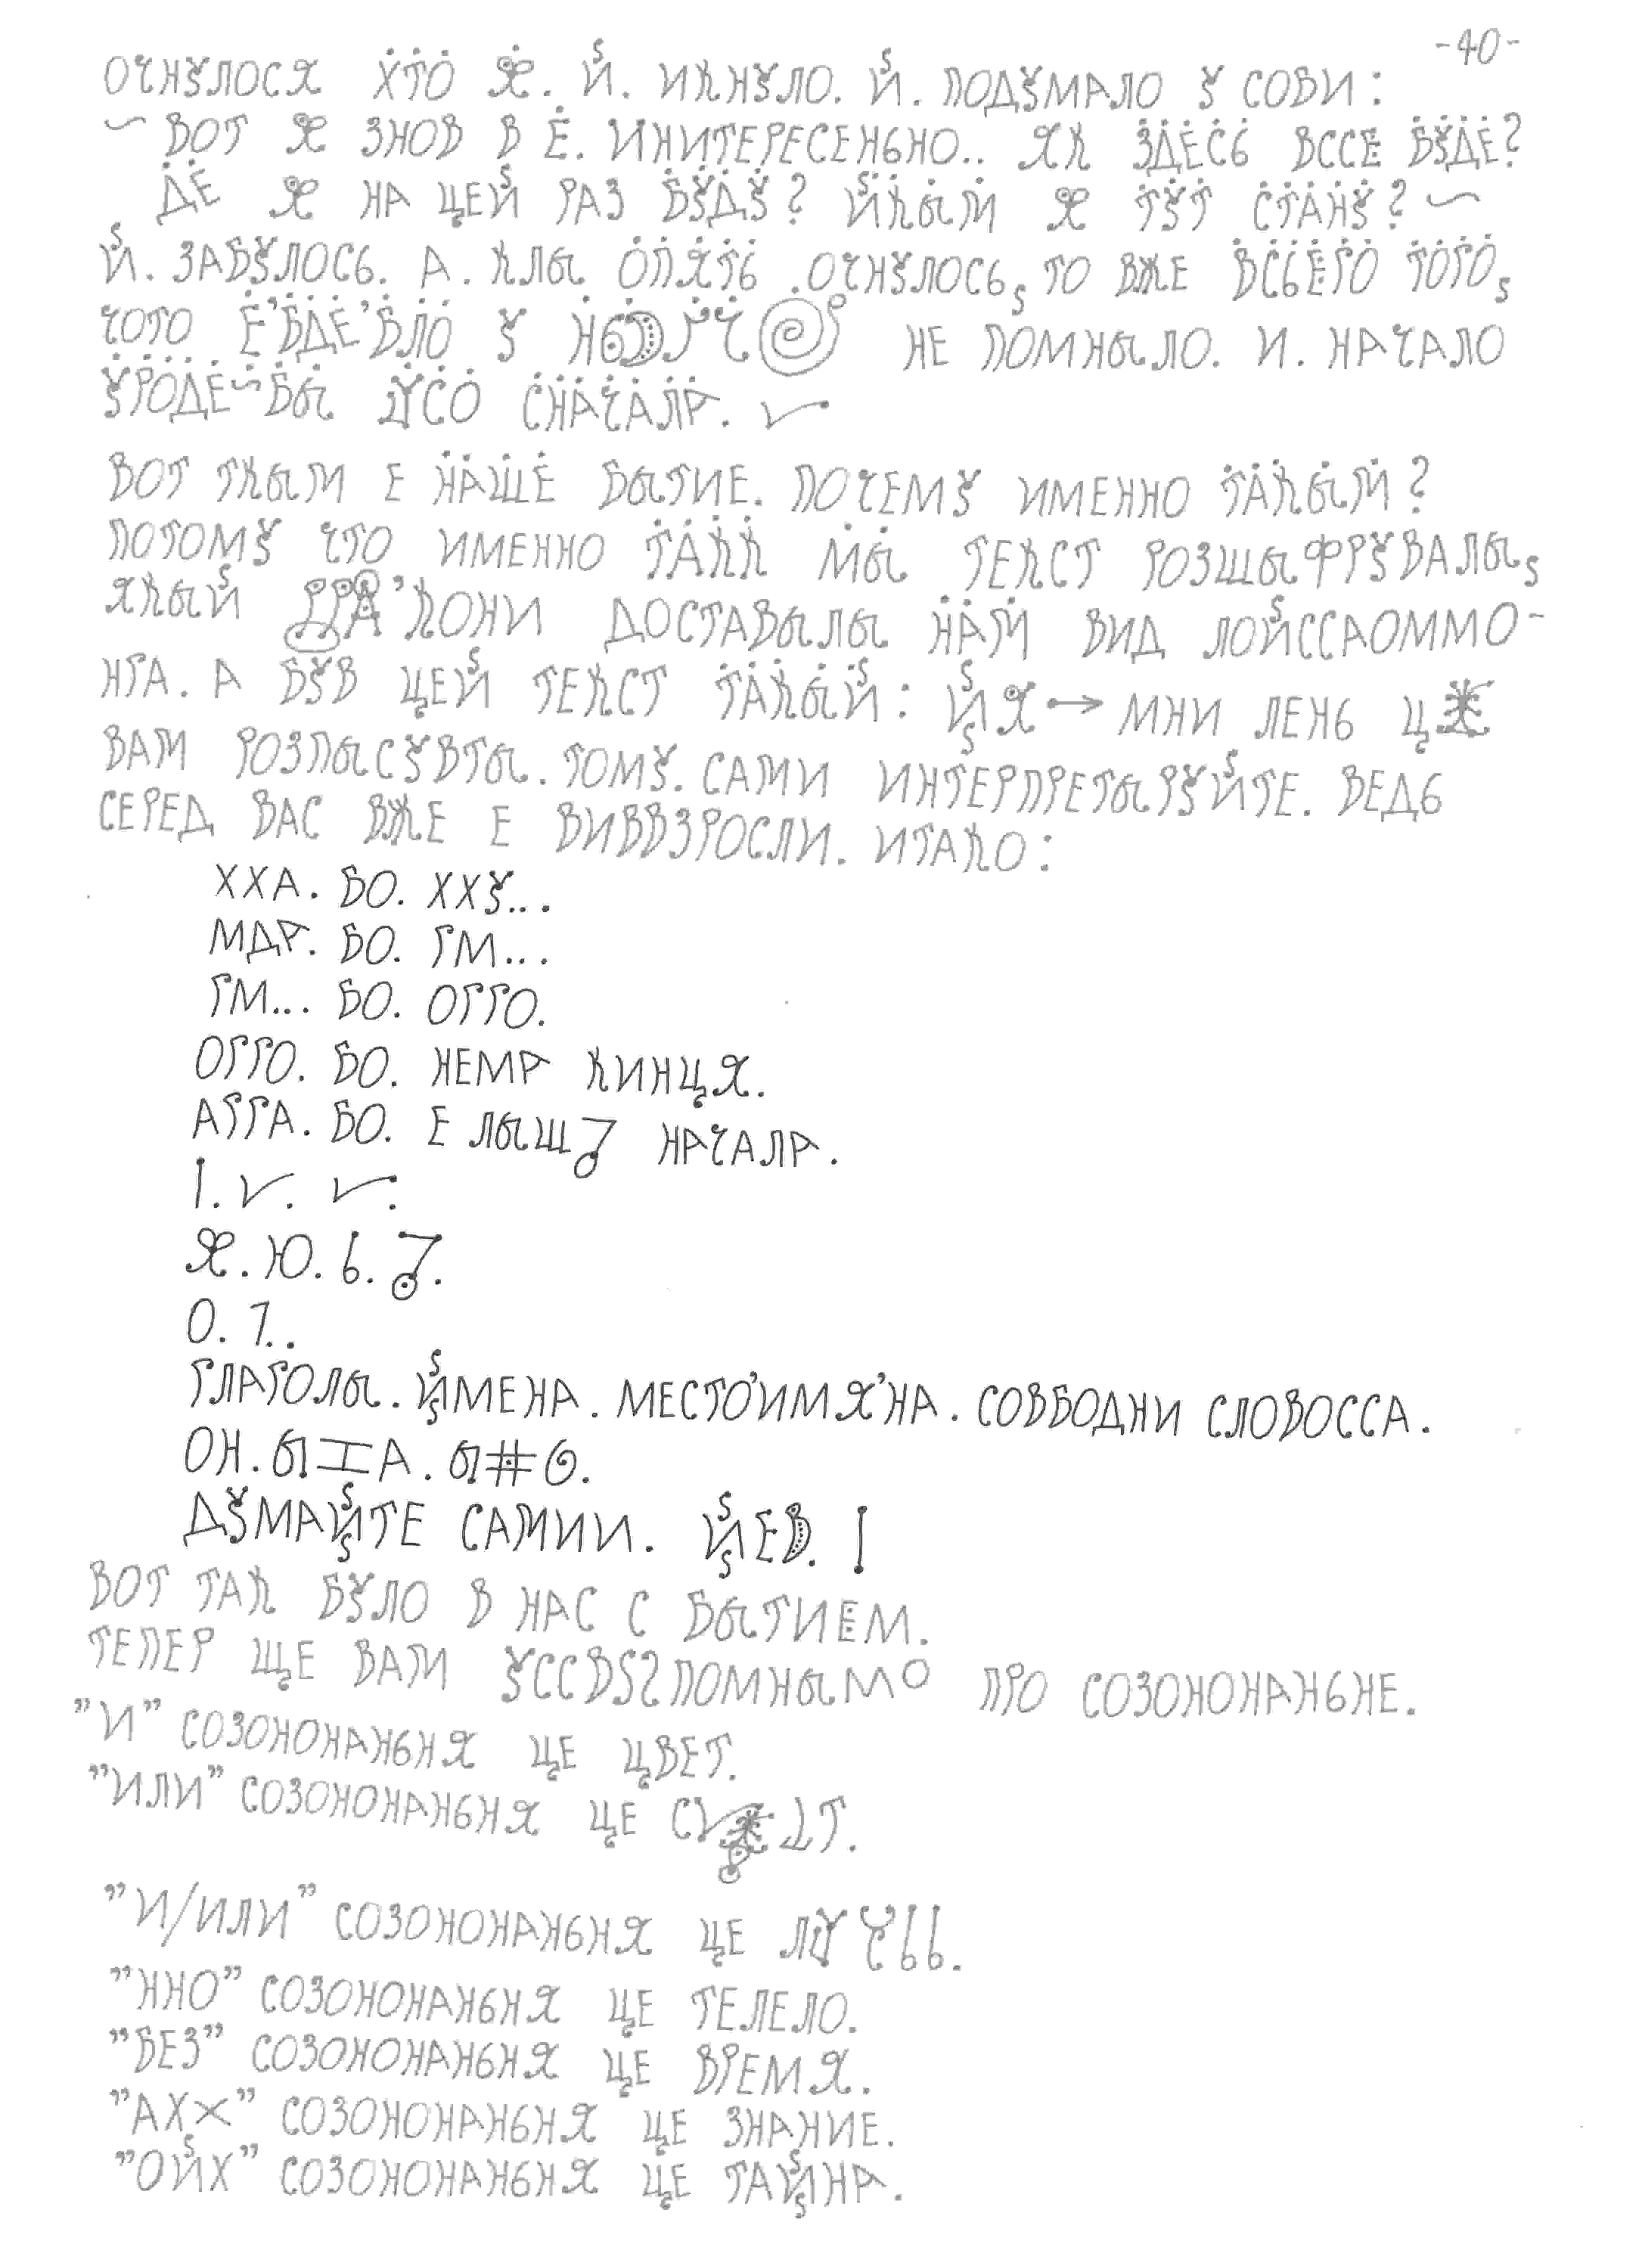 -40-
ОЧНУЛОСЯ ХТО Я. Й. ИКНУЛО. Й. ПОДУМАЛО У СОБИ:
~ ВОТ Я ЗНОВ В Е. ИНИТЕРЕСЕНЬНО.. ЯК ЗДЕСЬ ВССЕ БУДЕ?
ДЕ Я НА ЦЕЙ РАЗ БУДУ? ЙКЫМ Я ТУТ СТАНУ? ~
Й. ЗАБУЛОСЬ. А. КЛЫ ОПЯТЬ ОЧНУЛОСЬ, ТО ВЖЕ ВСЬЕГО ТОГО,
ЧОГО Е'БДЕ'БЛО У НЕ ПОМНЫЛО. И. НАЧАЛО
УРОДЕ~БЫ СНАЧАЛА.
ВОТ ТКЫМ Е НАШЕ БЫТИЕ. ПОЧЕМУ ИМЕННО ТАКЫМ?
ПОТОМУ ЧТО ИМЕННО ТАКК МЫ ТЕКСТ РОЗШЫФРУВАЛЫ,
ЯКЫЙ ДРА'КОНИ ДОСТАВЫЛЫ НАМ ВИД ЛОЙССАОММО-
НГА. А БУВ ЦЕЙ ТЕКСТ ТАКЫЙ: ЙЯ → МНИ ЛЕНЬ
ВАМ РОЗПЫСУВТЫ. ТОМУ. САМИ ИНТЕРПРЕТЫРУЙТЕ. ВЕДЬ
СЕРЕД ВАС ВЖЕ Е ВИВВЗРОСЛИ. ИТАКО:
ХХА. БО. ХХУ...
МДА. БО. ГМ...
ГМ... БО. ОГГО.
ОГГО. БО. НЕМА КИНЦЯ.
АГГА. БО. Е НАЧАЛА.
Я. Ю. Ь.
О. 1..
ГЛАГОЛЫ. ЙМЕНА. МЕСТО'ИМЯ'НА. СОВБОДНИ СЛОВОССА.
ОН.
ДУМАЙТЕ САМИИ. ЙЕВ.
ВОТ ТАК БУЛО В НАС С БЫТИЕМ.
ТЕПЕР ЩЕ ВАМ ПРО СОЗОНОНАНЬНЕ.
"И" СОЗОНОНАНЬНЯ ЦЕ ЦВЕТ.
"ИЛИ" СОЗОНОНАНЬНЯ ЦЕ
"И/ИЛИ" СОЗОНОНАНЬНЯ ЦЕ
"ННО" СОЗОНОНАНЬНЯ ЦЕ ТЕЛЕЛО.
"БЕЗ" СОЗОНОНАНЬНЯ ЦЕ ВРЕМЯ.
"АХХ" СОЗОНОНАНЬНЯ ЦЕ ЗНАНИЕ.
"ОЙХ" СОЗОНОНАНЬНЯ ЦЕ ТАЙНА.